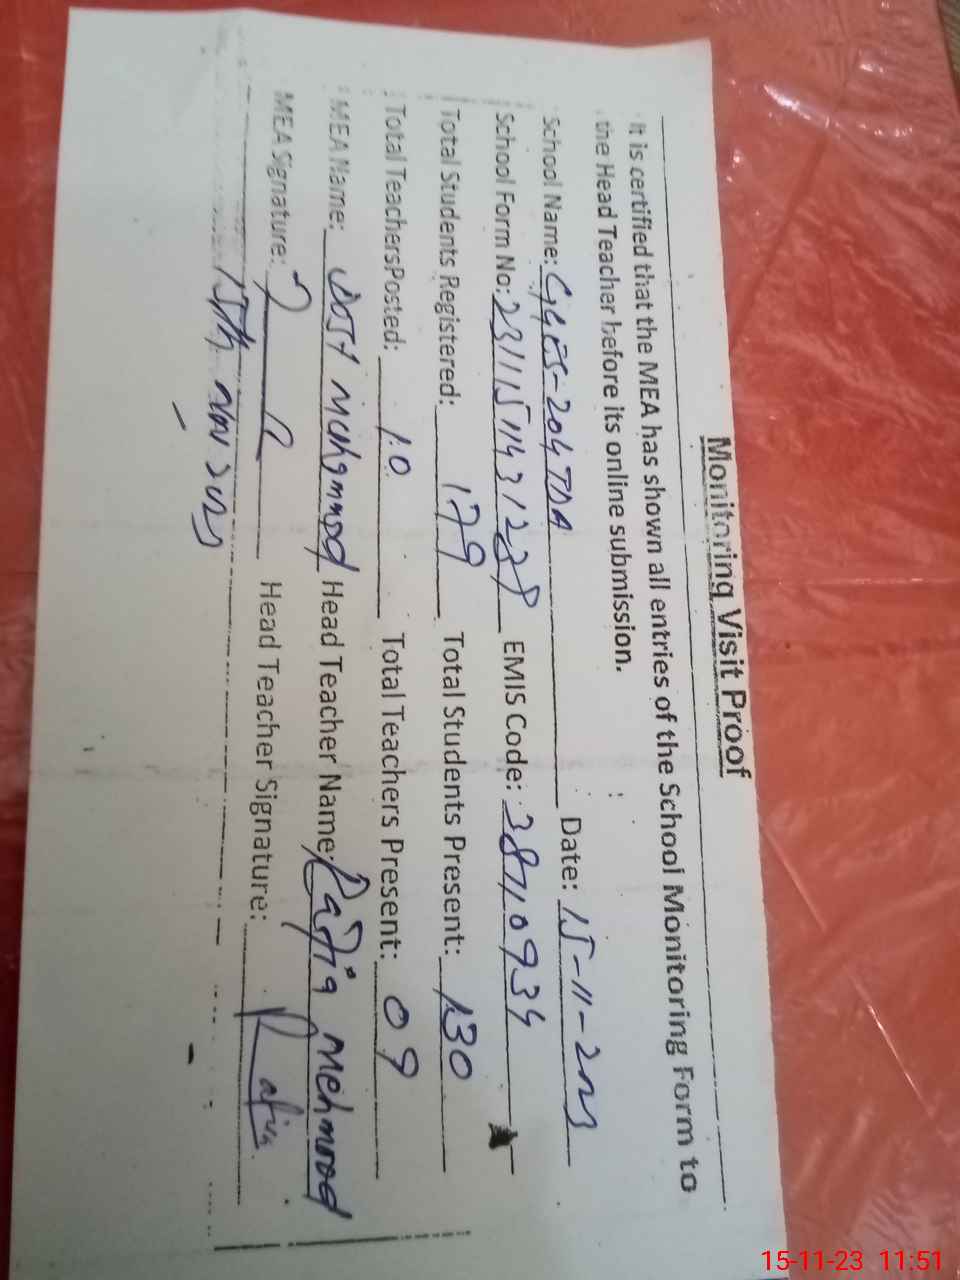 Monitoring Visit Proof
It is certified that the MEA has shown all entries of the School Monitoring Form to
the Head Teacher before its online submission.
School Name: GGES-204TDA Date: 15-11-2023
School Form No: EMIS Code: 38710934
Total Students Registered: 179 Total Students Present: 130
Total TeachersPosted: 10 Total Teachers Present: 09
MEA Name: Dost Muhammad Head Teacher Name: Rafia Mehmood
MEA Signature: Head Teacher Signature: Rafia
15th Nov 2023
15-11-23 11:51